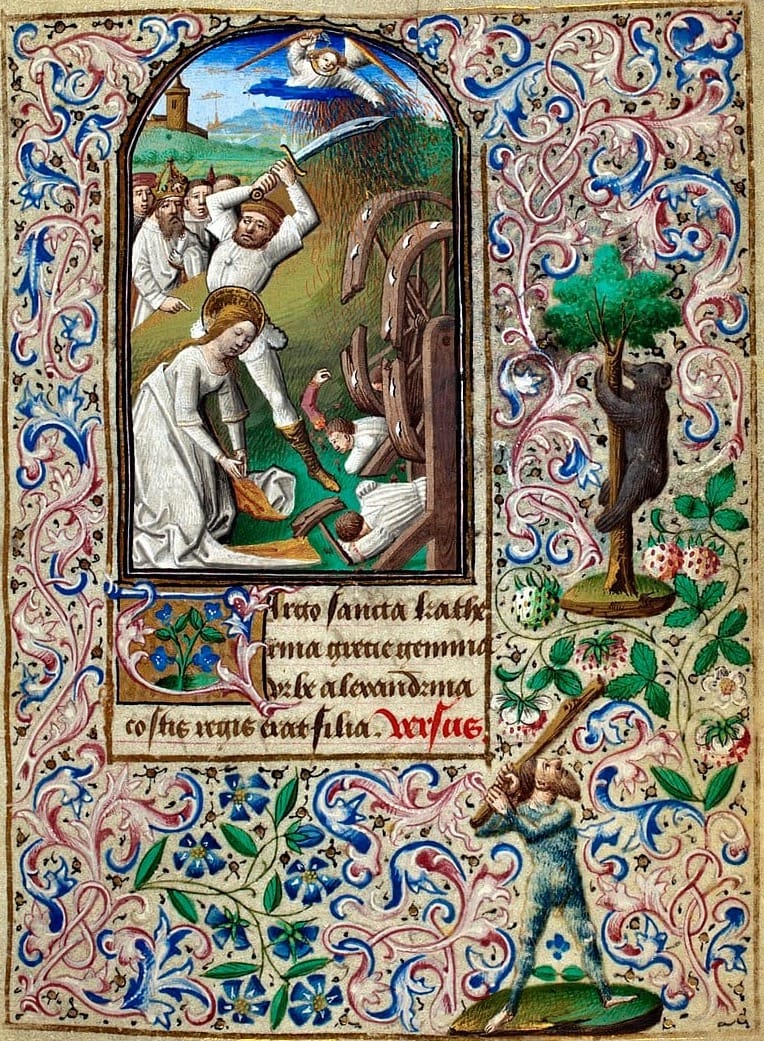 Virgo sancta kathe
rina grecie gemma
vrbe alexandrina
costis regis erat filia. Versus